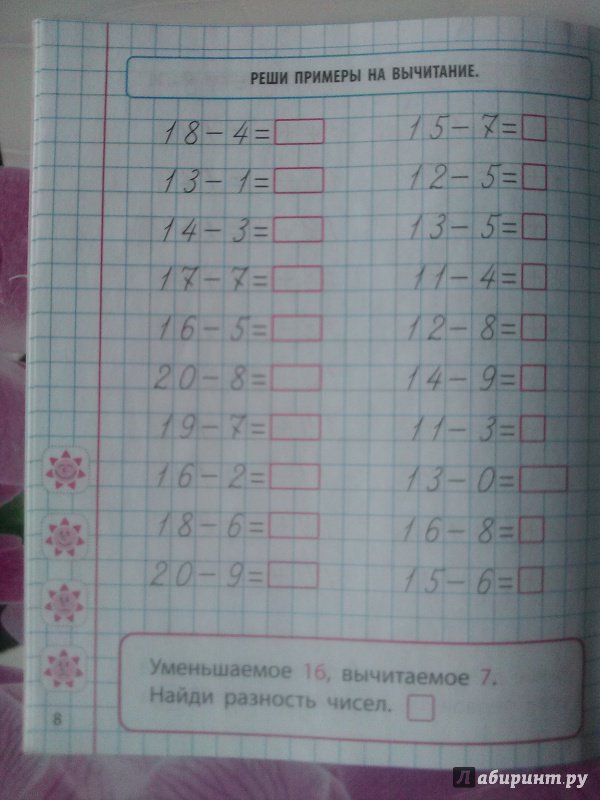 РЕШИ ПРИМЕРЫ НА ВЫЧИТАНИЕ.
18-4=
13-1=
14-3=
17-7=
16-5=
20-8=
19-7=
16-2=
18-6=
20-9=
15-7=
12-5=
13-5=
11-4=
12-8=
14-9=
11-3=
13-0=
16-8=
15-6=
Уменьшаемое 16, вычитаемое 7.
Найди разность чисел.
8
Лабиринт.ру